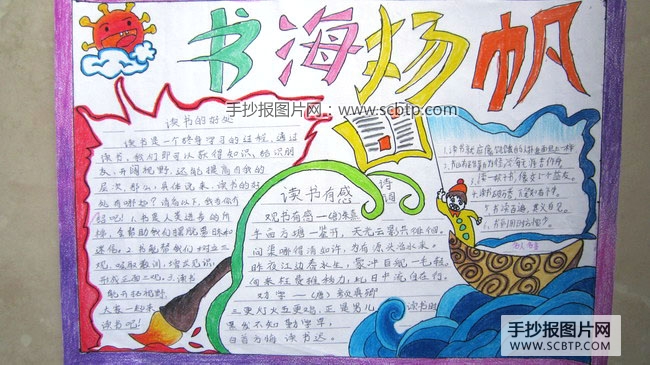 书海扬帆
手抄报图片网：www.scbtp.com
读书的好处
读书是一个终身学习的过程，通过
读书，我们即可以获得知识、结识朋
友、开阔视野，还能提高自我的
层次。那么，具体说来，读书的好
处有哪些？请看以下，我为你们
解吧！1.书是人类进步的
梯，会帮助我们摆脱蒙昧和
迷信。2.书能帮我们树立三
观，吸取教训，增长见识，
形成正面三观。3.读书
能开拓视野
大家一起来
读书吧！
读书有感
诗词
观书有感—(宋)朱熹
半亩方塘一鉴开，天光云影共徘徊。
问渠哪得清如许，为有源头活水来。
昨夜江边春水生，蒙冲巨舰一毛轻，
向来枉费推移力，此日中流自在行。
劝学—(唐)颜真卿
三更灯火五更鸡，正是男儿读书时
黑发不知勤学早，
白首方悔读书迟。
手抄报图片网
WWW.SCBTP.COM